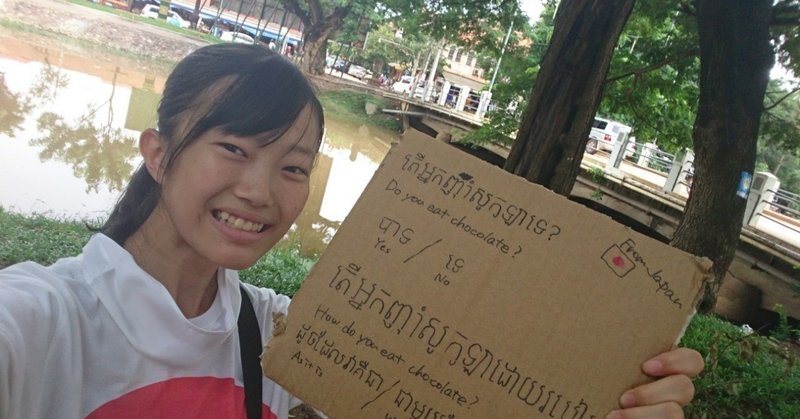 តើអ្នកញ៉ាំសូកូឡាទេ?
Do you eat chocolate?
បាទ / ទេ
Yes No
From Japan
តើអ្នកញ៉ាំសូកូឡាដោយរបៀប
How do you eat chocolate?
ដូចដែលវាគឺជា / ជាមួយ
As it is